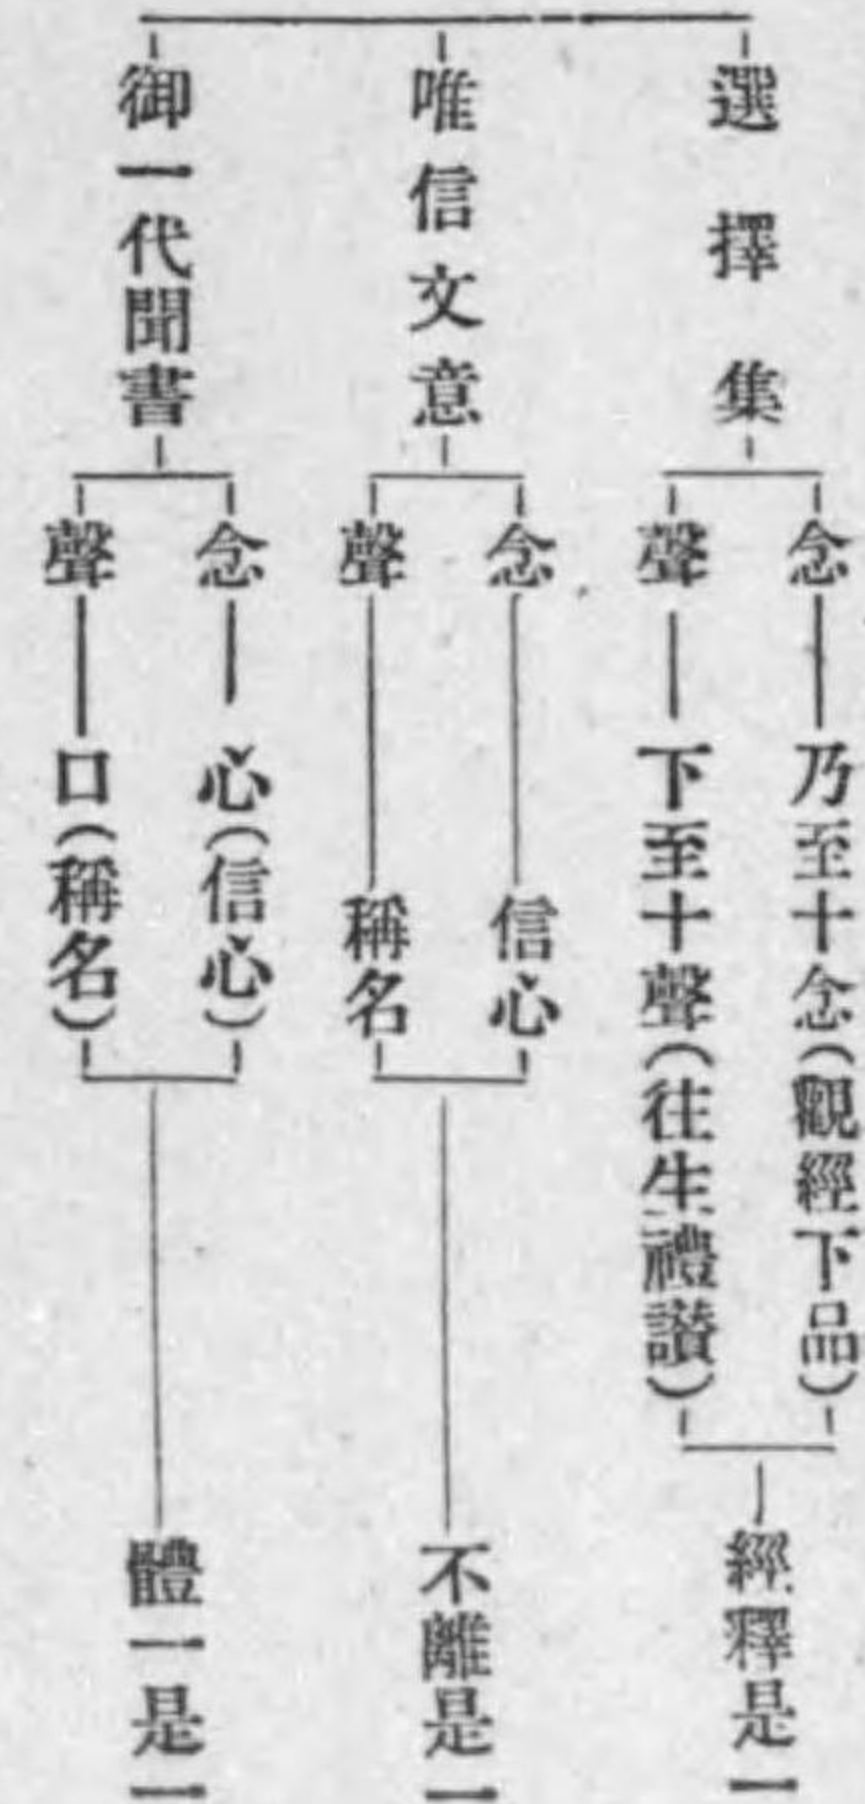 選擇集
念
乃至十念(觀經下品)
聲
下至十聲(往生禮讚)
經釋是一
唯信文意
念
信心
聲
稱名
不離是一
御一代聞書
念
心(信心)
聲
口(稱名)
體一是一